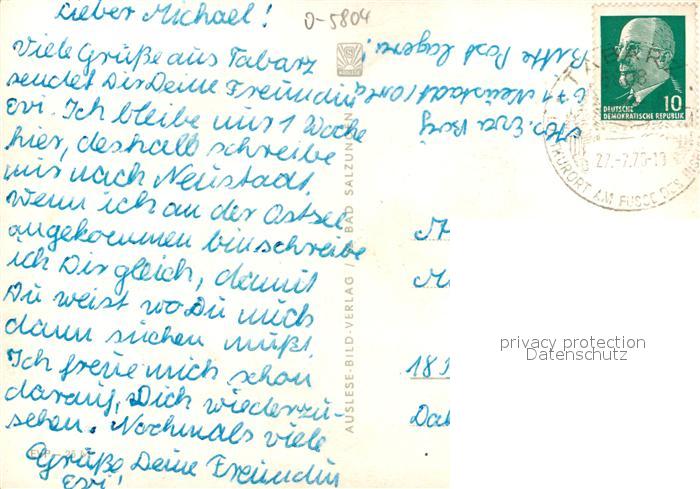 Lieber Michael!
Viele Grüße aus Tabarz
sendet Dir Deine Freundin
Evi. Ich bleibe nur 1 Woche
hier, deshalb schreibe
mir nach Neustadt.
Wenn ich an der Ostsee
angekommen bin schreibe
ich Dir gleich, damit
Du weist wo Du mich
dann suchen mußt.
Ich freue mich schon
darauf, Dich wiederzu-
sehen. Nochmals viele
Grüße Deine Freundin
Evi!
0-5804
Bitte Post lagern!
671 Neustadt (Orla)
AUSLESE-BILD-VERLAG / BAD SALZUNGEN
TABARZ
KURORT AM FUSSE DES
10
DEUTSCHE
DEMOKRATISCHE REPUBLIK
18
Da
privacy protection
Datenschutz